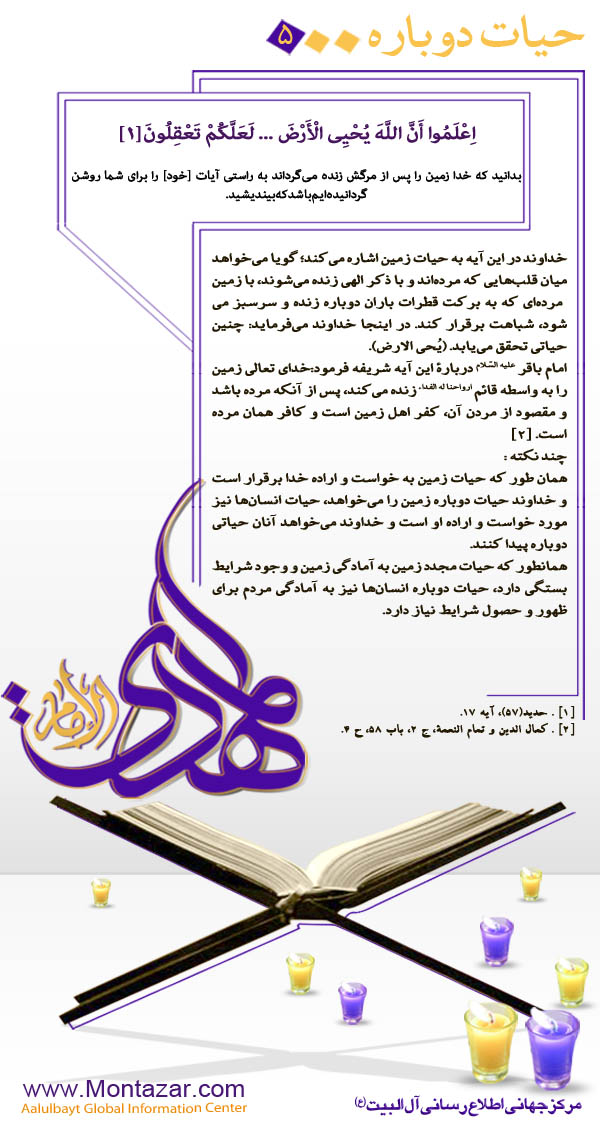 حیات دوباره ۵
اِعْلَمُوا أَنَّ اللَّهَ يُحْيِي الْأَرْضَ ... لَعَلَّكُمْ تَعْقِلُونَ[۱]
بدانید که خدا زمین را پس از مرگش زنده می‌گرداند به راستی آیات [خود] را برای شما روشن
گردانیده‌ایم باشد که بیندیشید.
خداوند در این آیه به حیات زمین اشاره می‌کند؛ گویا می‌خواهد
میان قلب‌هایی که مرده‌اند و با ذکر الهی زنده می‌شوند، با زمین
مرده‌ای که به برکت قطرات باران دوباره زنده و سرسبز می
شود، شباهت برقرار کند. در اینجا خداوند می‌فرماید: چنین
حیاتی تحقق می‌یابد. (یُحی الارض).
امام باقر علیه السّلام دربارهٔ این آیه شریفه فرمود:خدای تعالی زمین
را به واسطه قائم ارواحنا له الفداء زنده می‌کند، پس از آنکه مرده باشد
و مقصود از مردن آن، کفر اهل زمین است و کافر همان مرده
است. [۲]
چند نکته :
همان طور که حیات زمین به خواست و اراده خدا برقرار است
و خداوند حیات دوباره زمین را می‌خواهد، حیات انسان‌ها نیز
مورد خواست و اراده او است و خداوند می‌خواهد آنان حیاتی
دوباره پیدا کنند.
همانطور که حیات مجدد زمین به آمادگی زمین و وجود شرایط
بستگی دارد، حیات دوباره انسان‌ها نیز به آمادگی مردم برای
ظهور و حصول شرایط نیاز دارد.
[۱] . حدید(۵۷)، آیه ۱۷.
[۲] . کمال الدین و تمام النعمة، ج ۲، باب ۵۸، ح ۴.
الإمام
المهدی
مرکز جهانی اطلاع رسانی آل البیت (ع)
www.Montazar.com
Aalulbayt Global Information Center